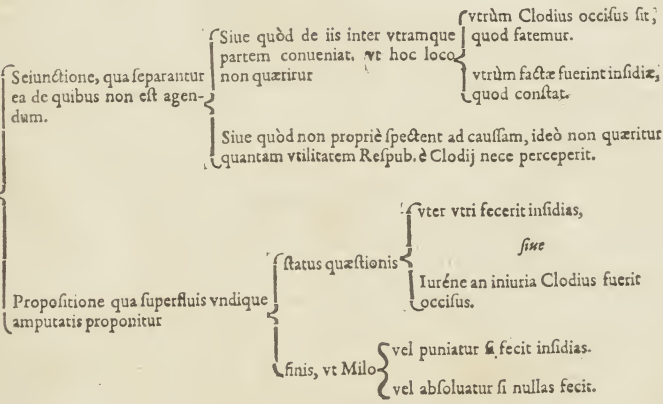 Seiunctione, qua separantur
ea de quibus non est agen-
dum.
Siue quòd de iis inter vtramque
partem conueniat. vt hoc loco
non quærirur
vtrùm Clodius occisus sit,
quod fatemur.
vtrùm factæ fuerint insidiæ,
quod constat.
Siue quòd non propriè spectent ad caussam, ideò non quæritur
quantam vtilitatem Respub. è Clodij nece perceperit.
Propositione qua superfluis vndique
amputatis proponitur
status quæstionis
vter vtri fecerit insidias,
siue
Iuréne an iniuria Clodius fuerit
occisus.
finis, vt Milo
vel puniatur si fecit insidias.
vel absoluatur si nullas fecit.